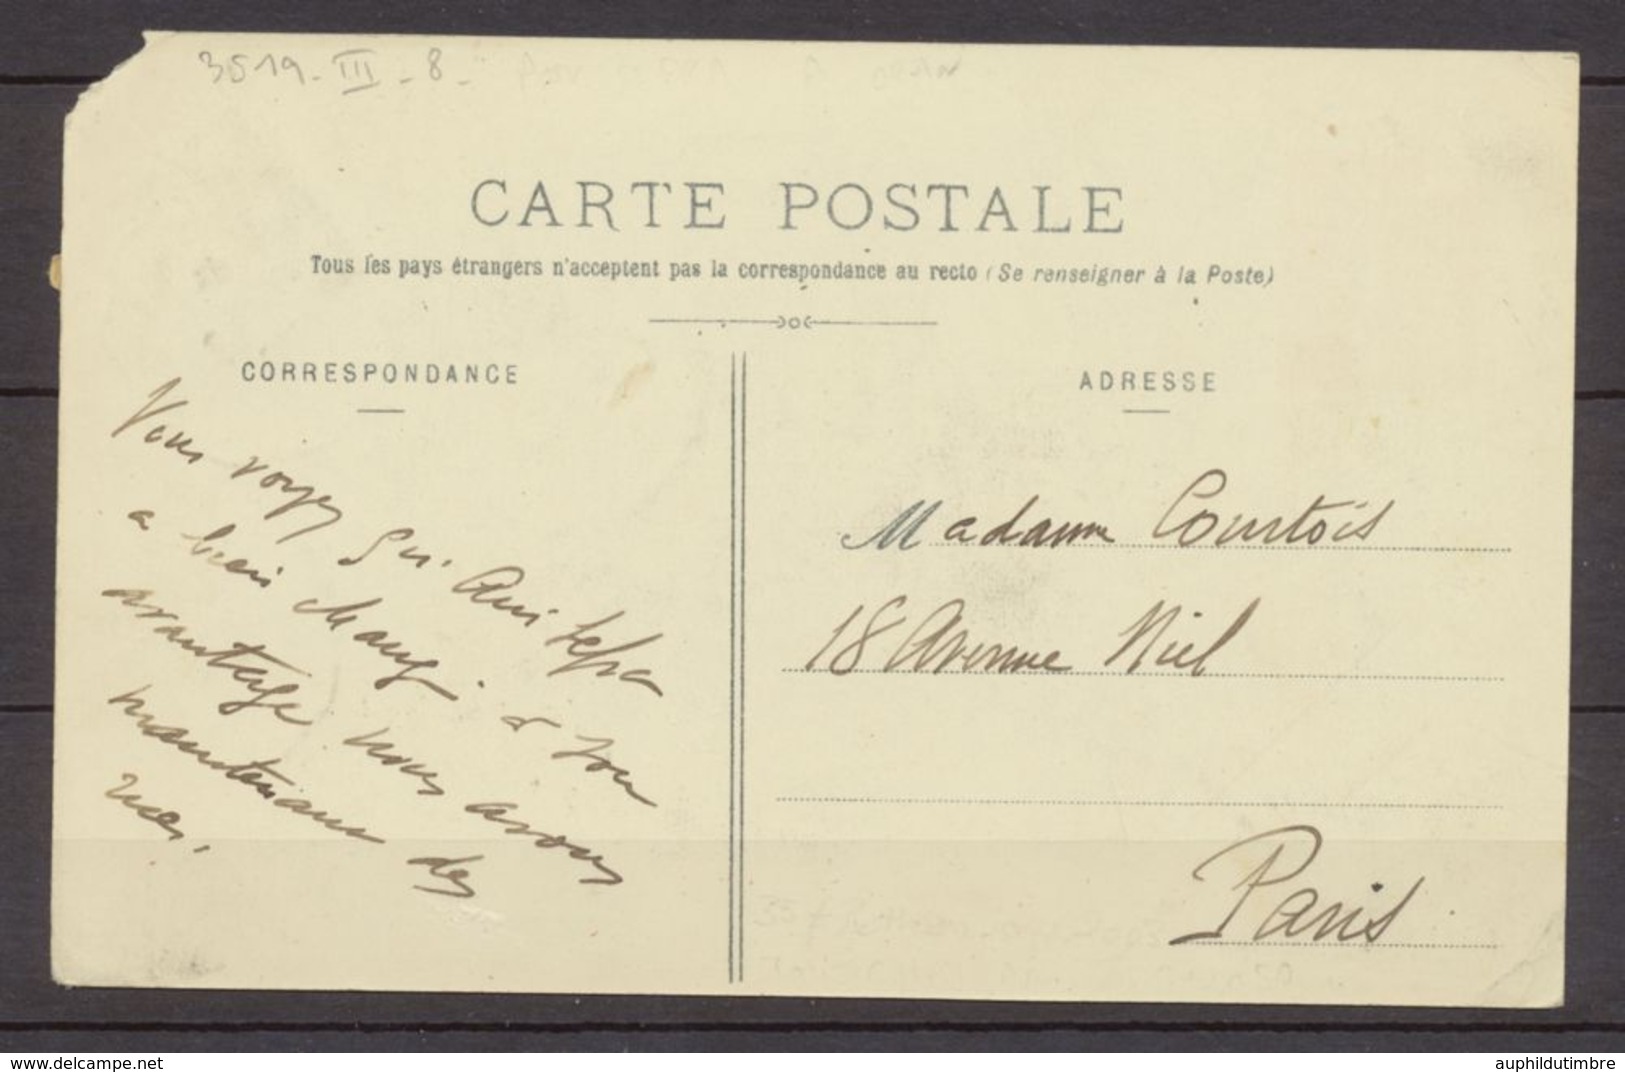 3519-III-8-
CARTE POSTALE
Tous les pays étrangers n'acceptent pas la correspondance au recto (Se renseigner à la Poste)
CORRESPONDANCE
ADRESSE
Vous voyez
a bien changé. à son
avantage nous avons
maintenant des
Madame Courtois
18 Avenue Niel
Paris
auphildutimbre